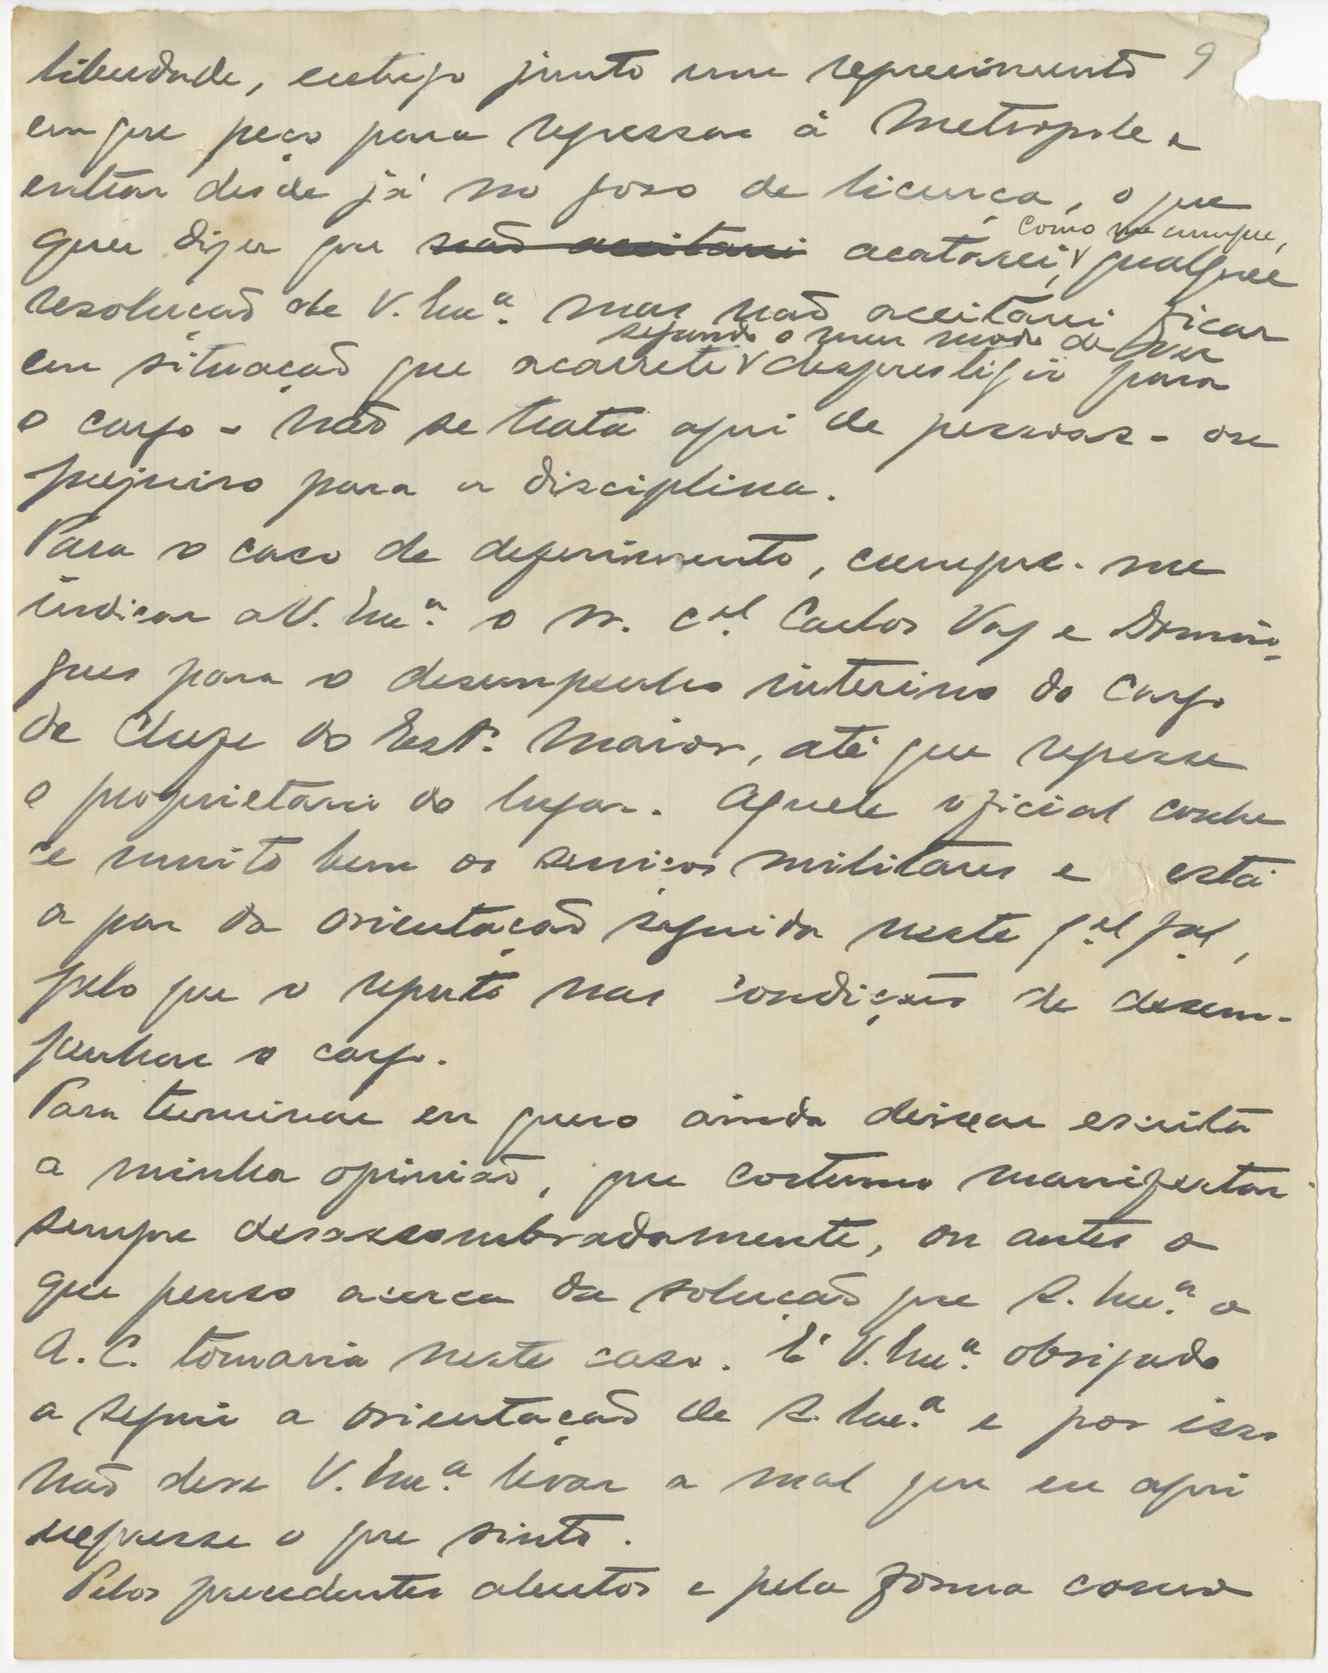 9
liberdade, entrego junto um requerimento
em que peço para regressar á Metropole e
entrar desde já no goso de licença, o que
quer dizer que não aceitarei acatarei, como me cumpre, qualquer
resolução de V. Exª. mas não aceitarei ficar
em situação que acarrete segundo o meu modo de ver desprestigio para
o cargo - não se trata aqui de pessoas - ou
prejuiso para a disciplina.
Para o caso de deferimento, cumpre-me
indicar a V. Exª. o sr. cel. Carlos Vaz e Domin-
gues para o desempenho interino do cargo
de Chefe do Estº. Maior, até que regresse
o proprietario do lugar. Aquele oficial conhe
ce muito bem os serviços militares e está
a par da orientação seguida neste qel. gal,
pelo que o reputo nas condições de desem-
penhar o cargo.
Para terminar eu quero ainda deixar escrita
a minha opinião, que costumo manifestar
sempre desassombradamente, ou antes o
que penso acerca da solução que S. Exª. o
A. C. tomaria neste caso. É V. Exª. obrigado
a seguir a orientação de S. Exª. e por isso
não deve V. Exª. levar a mal que eu aqui
expresse o que sinto.
Pelos precedentes abertos e pela forma como